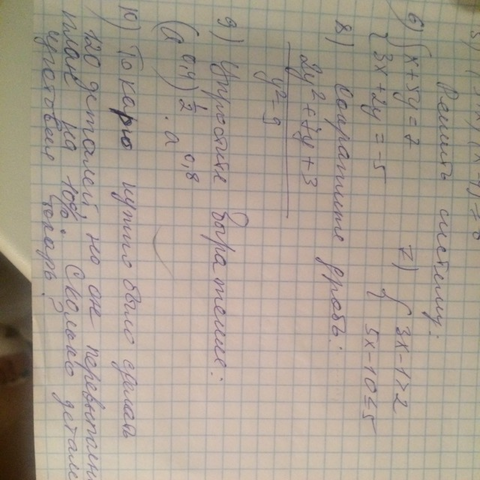 Решить систему:
6) { x + 5y = 7
3x + 2y = -5
7) { 3x - 1 > 2
5x - 10 ≤ 5
8) Сократите дробь:
2y² + 7y + 3
y² - 9
9) Упростите выражение:
(a^0,4)^1/2 · a^0,8
10) Токарю нужно было сделать
120 деталей, но он перевыполни
план на 10%. Сколько детале
изготовил токарь?